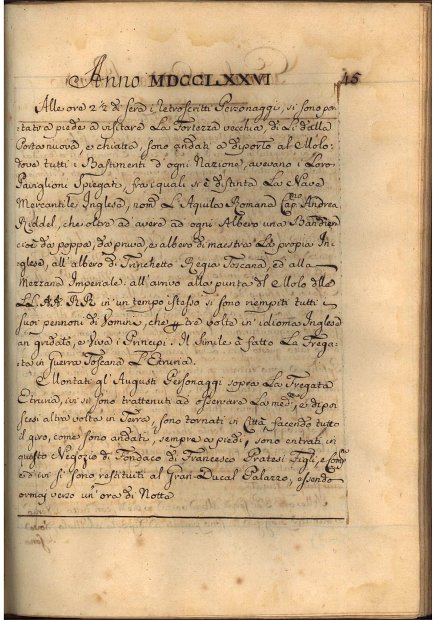 Anno MDCCLXXVI
45
Alle ore 22 di sera i retroscritti Personaggi, si sono por
tati a piede a visitare La Fortezza vecchia, di Lì dalla
Porta nuova, e chiatta, sono andati a diporto al Molo:
dove tutti i Bastimenti d'ogni Nazione, avevano i Loro
Paviglioni Spiegati, fra i quali si è distinta La Nave
Mercantile Inglese, nom.ta L'Aquila Romana Cap.no Andrea
Riddel, che oltre ad avere ad ogni Albero una Bandiera
cioè da poppa, da prua, e albero di maestra La propia In:
glese, all'albero di Trinchetto Regia Toscana, ed alla
Mezzana Imperiale: all'arrivo alla punta del Molo delle
LL. AA. RR. in un tempo istesso si sono riempiti tutti i
suoi pennoni di Uomini, che p tre volte in idioma Inglese
an gridato, e Viva i Principi: Il simile à fatto La Frega:
ta in Guerra Toscana L'Etruria.
Montati gl'Augusti Personaggi sopra La Fregata
Etruria, ivi si sono trattenuti ad osservare La med.a, e di poi
scesi altra volta in Terra, sono tornati in Città, facendo tutto
il giro, come sono andati, sempre a piedi, sono entrati in
questo Negozio di Fondaco di Francesco Pratesi Figli, e Comp.
ed ivi si sono restituiti al Gran-Ducal Palazzo, essendo
ormaj verso un'ora di Notte